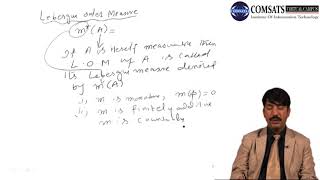 Lebesgue outer Measure
COMSATS
VIRTUAL CAMPUS
Institute Of Information Technology
m*(A) =
If A is itself measurable then
L.O.M of A is called
its Lebesgue measure denoted
by m(A)
i) m is monotone, m(ϕ)=0
ii) m is finitely additive
m is countably